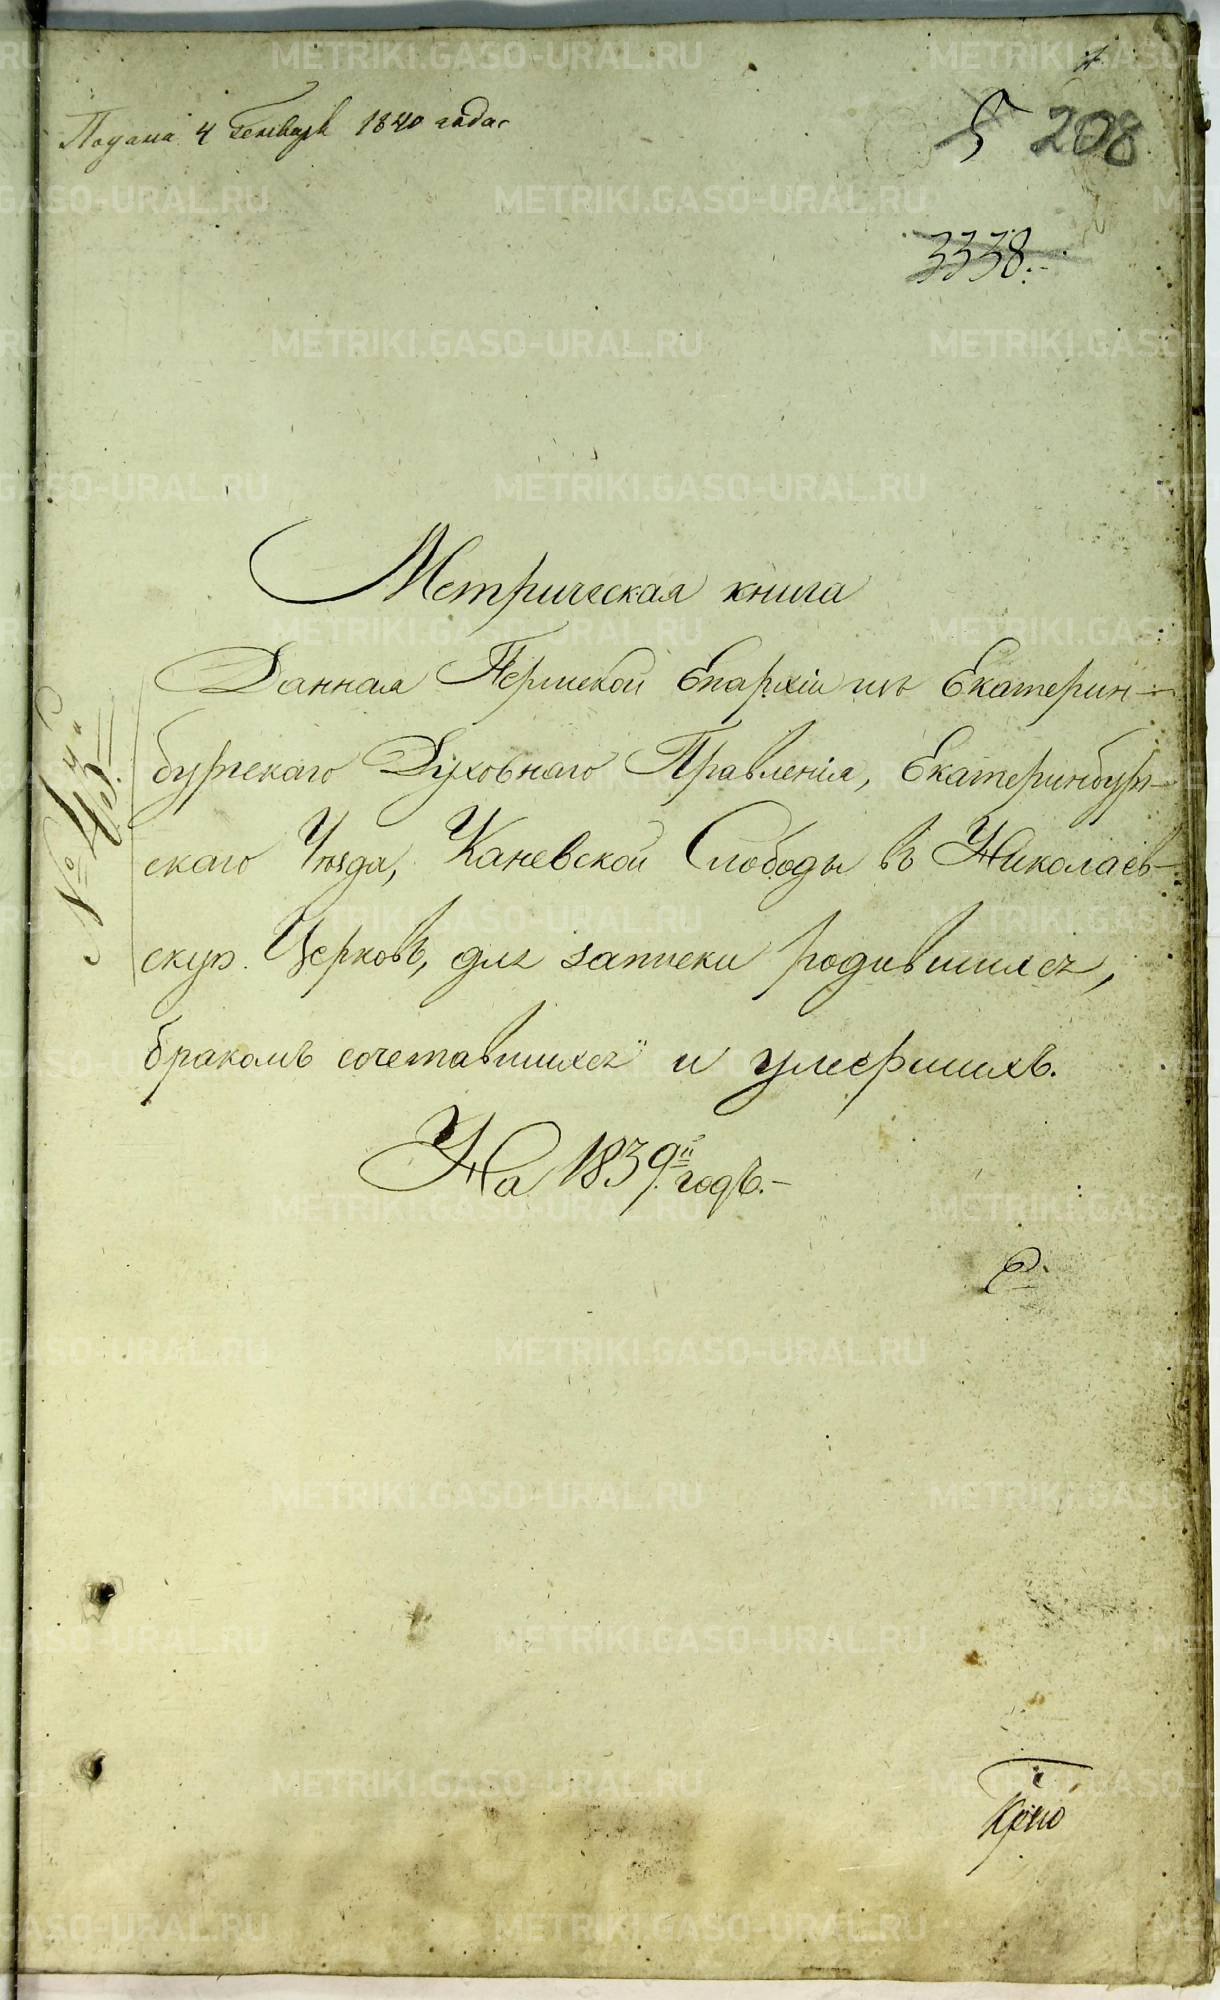 Подана 4 Генваря 1840 года
5 208
3338.
Метрическая книга
Данная Пермской Епархіи изъ Екатерин-
бургскаго Духовнаго Правленія, Екатеринбург-
скаго Уѣзда, Каневской Слободы въ Николаев-
скую Церковь, для записки родившихся,
бракомъ сочетавшихся и умершихъ.
На 1839й годъ.
№ 43.